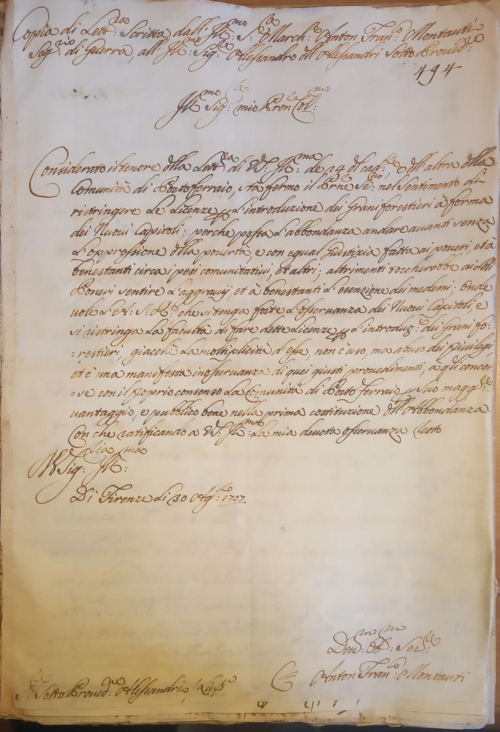 Copia di Lett.ra Scritta dall' Ill.mo S.re March.e Anton Fran.co Montauti
Seg.rio di Guerra, all' Ill.re Sig.re Alessandro dell' Alessandri Sotto Proved.re
494
Ill.mo Sig.re mio Pron Col.mo
Considerato il tenore della Lett.ra di V.S. Ill.ma de 24 del cad.te, e dell' altra della
Comunità di Portoferraio, sta fermo il Pr̃ne Ser.mo nel Sentimento di
ristringere le Licenze p l'introduzione dei Grani forestieri à forma
dei Nuovi Capitoli; perche possa l'abbondanza andare avanti senza
l'oppressione della povertà, e con egual Giustizia fatta ai poveri, et à
benestanti circa i pesi comunitativi, et altri; altrimenti toccherebbe ai
Poveri sentire l'aggravij, et à benestanti l'esenzione dei medemi; Onde
vuole S.A.S. che si tenga forte l'osservanza dei Nuovi Capitoli, e
si ristringa la facultà di fare dette licenze p l'introduz.e dei Grani fo-
-restieri, giache la moltiplicità d'esse, non è uso, ma abuso dei privilegi
et è una manifesta inosservanza di quei giusti provedimenti, à gli conces-
-se con il proprio contento la Comunità di Porto ferraio p suo magg.re
vantaggio, e pubblico bene nella prima costituzione dell' Abbondanza
Con che ratificando a V.S. Ill.ma la mia devota osservanza resto
D V.Sig.ria Ill.ma
Di Firenze li 30 Ag.to 1707.
Dev.mo Ob.mo Ser.re
Anton Fran.co Montauti
S.re Sotto Proved.re Alessandri